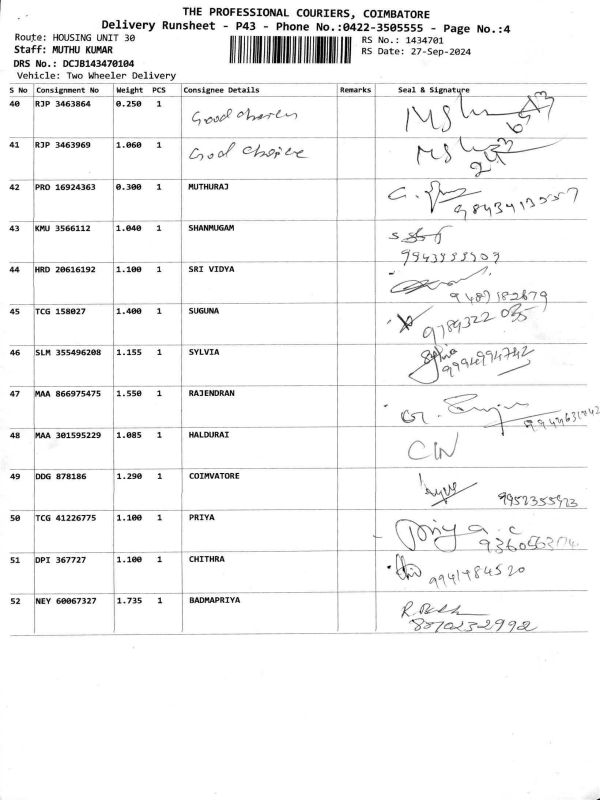 THE PROFESSIONAL COURIERS, COIMBATORE
Delivery Runsheet - P43 - Phone No.:0422-3505555 - Page No.:4
Route: HOUSING UNIT 30 RS No.: 1434701
Staff: MUTHU KUMAR RS Date: 27-Sep-2024
DRS No.: DCJB143470104
Vehicle: Two Wheeler Delivery
S No Consignment No Weight PCS Consignee Details Remarks Seal & Signature
40 RJP 3463864 0.250 1 Good
41 RJP 3463969 1.060 1 Good choice
42 PRO 16924363 0.300 1 MUTHURAJ
43 KMU 3566112 1.040 1 SHANMUGAM
44 HRD 20616192 1.100 1 SRI VIDYA
9487182679
45 TCG 158027 1.400 1 SUGUNA
9789322035
46 SLM 355496208 1.155 1 SYLVIA
9994994742
47 MAA 866975475 1.550 1 RAJENDRAN
48 MAA 301595229 1.085 1 HALDURAI
49 DDG 878186 1.290 1 COIMVATORE
9952355923
50 TCG 41226775 1.100 1 PRIYA Priya . c
51 DPI 367727 1.100 1 CHITHRA
9941984520
52 NEY 60067327 1.735 1 BADMAPRIYA
8870232992